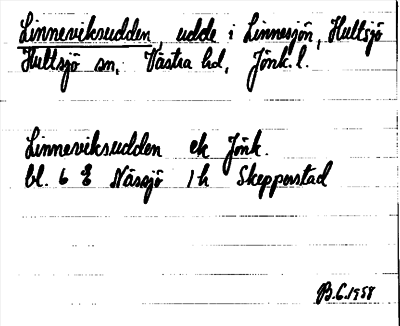 Linneviksudden, udde i Linnesjön, Hultsjö
Hultsjö sn, Västra hd, Jönk. l.
Linneviksudden ek Jönk.
bl. 6 E Nässjö 1 h Skepperstad
B.C. 1958